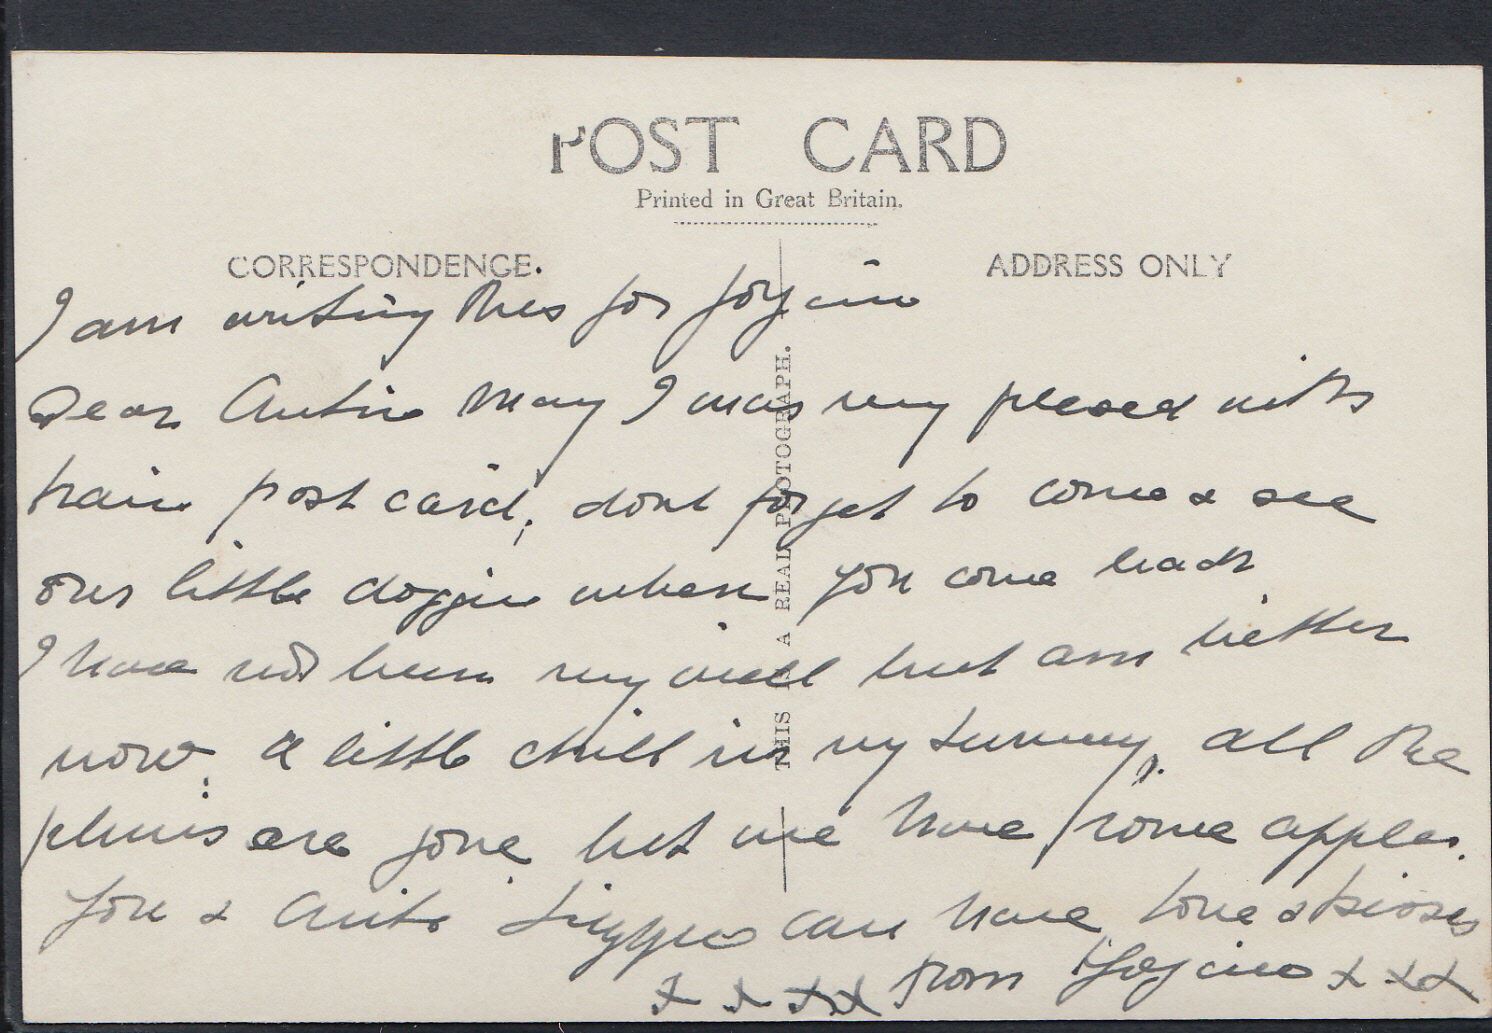 POST CARD
Printed in Great Britain.
CORRESPONDENCE.
ADDRESS ONLY
THIS IS A REAL PHOTOGRAPH.
I am writing this for
Dear Auntie May I was very pleased with
train post card, dont forget to come & see
our little doggie when you come back
I have not been very well but am better
now. a little chill in my tummy. all the
plums are gone but we have some apples.
You & can have love & kisses
x x x x from x x x